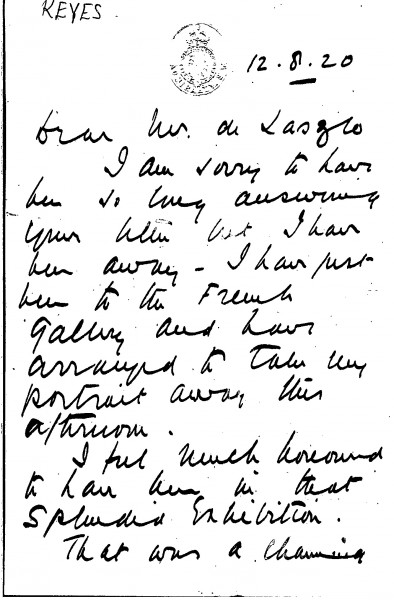 KEYES
12.8.20
Dear Mr. de Laszlo
I am sorry to have
been so long answering
your letter but I have
been away - I have just
been to the French
Gallery and have
arranged to take my
portrait away this
afternoon.
I feel much honoured
to have been in that
Splendid Exhibition.
That was a charming